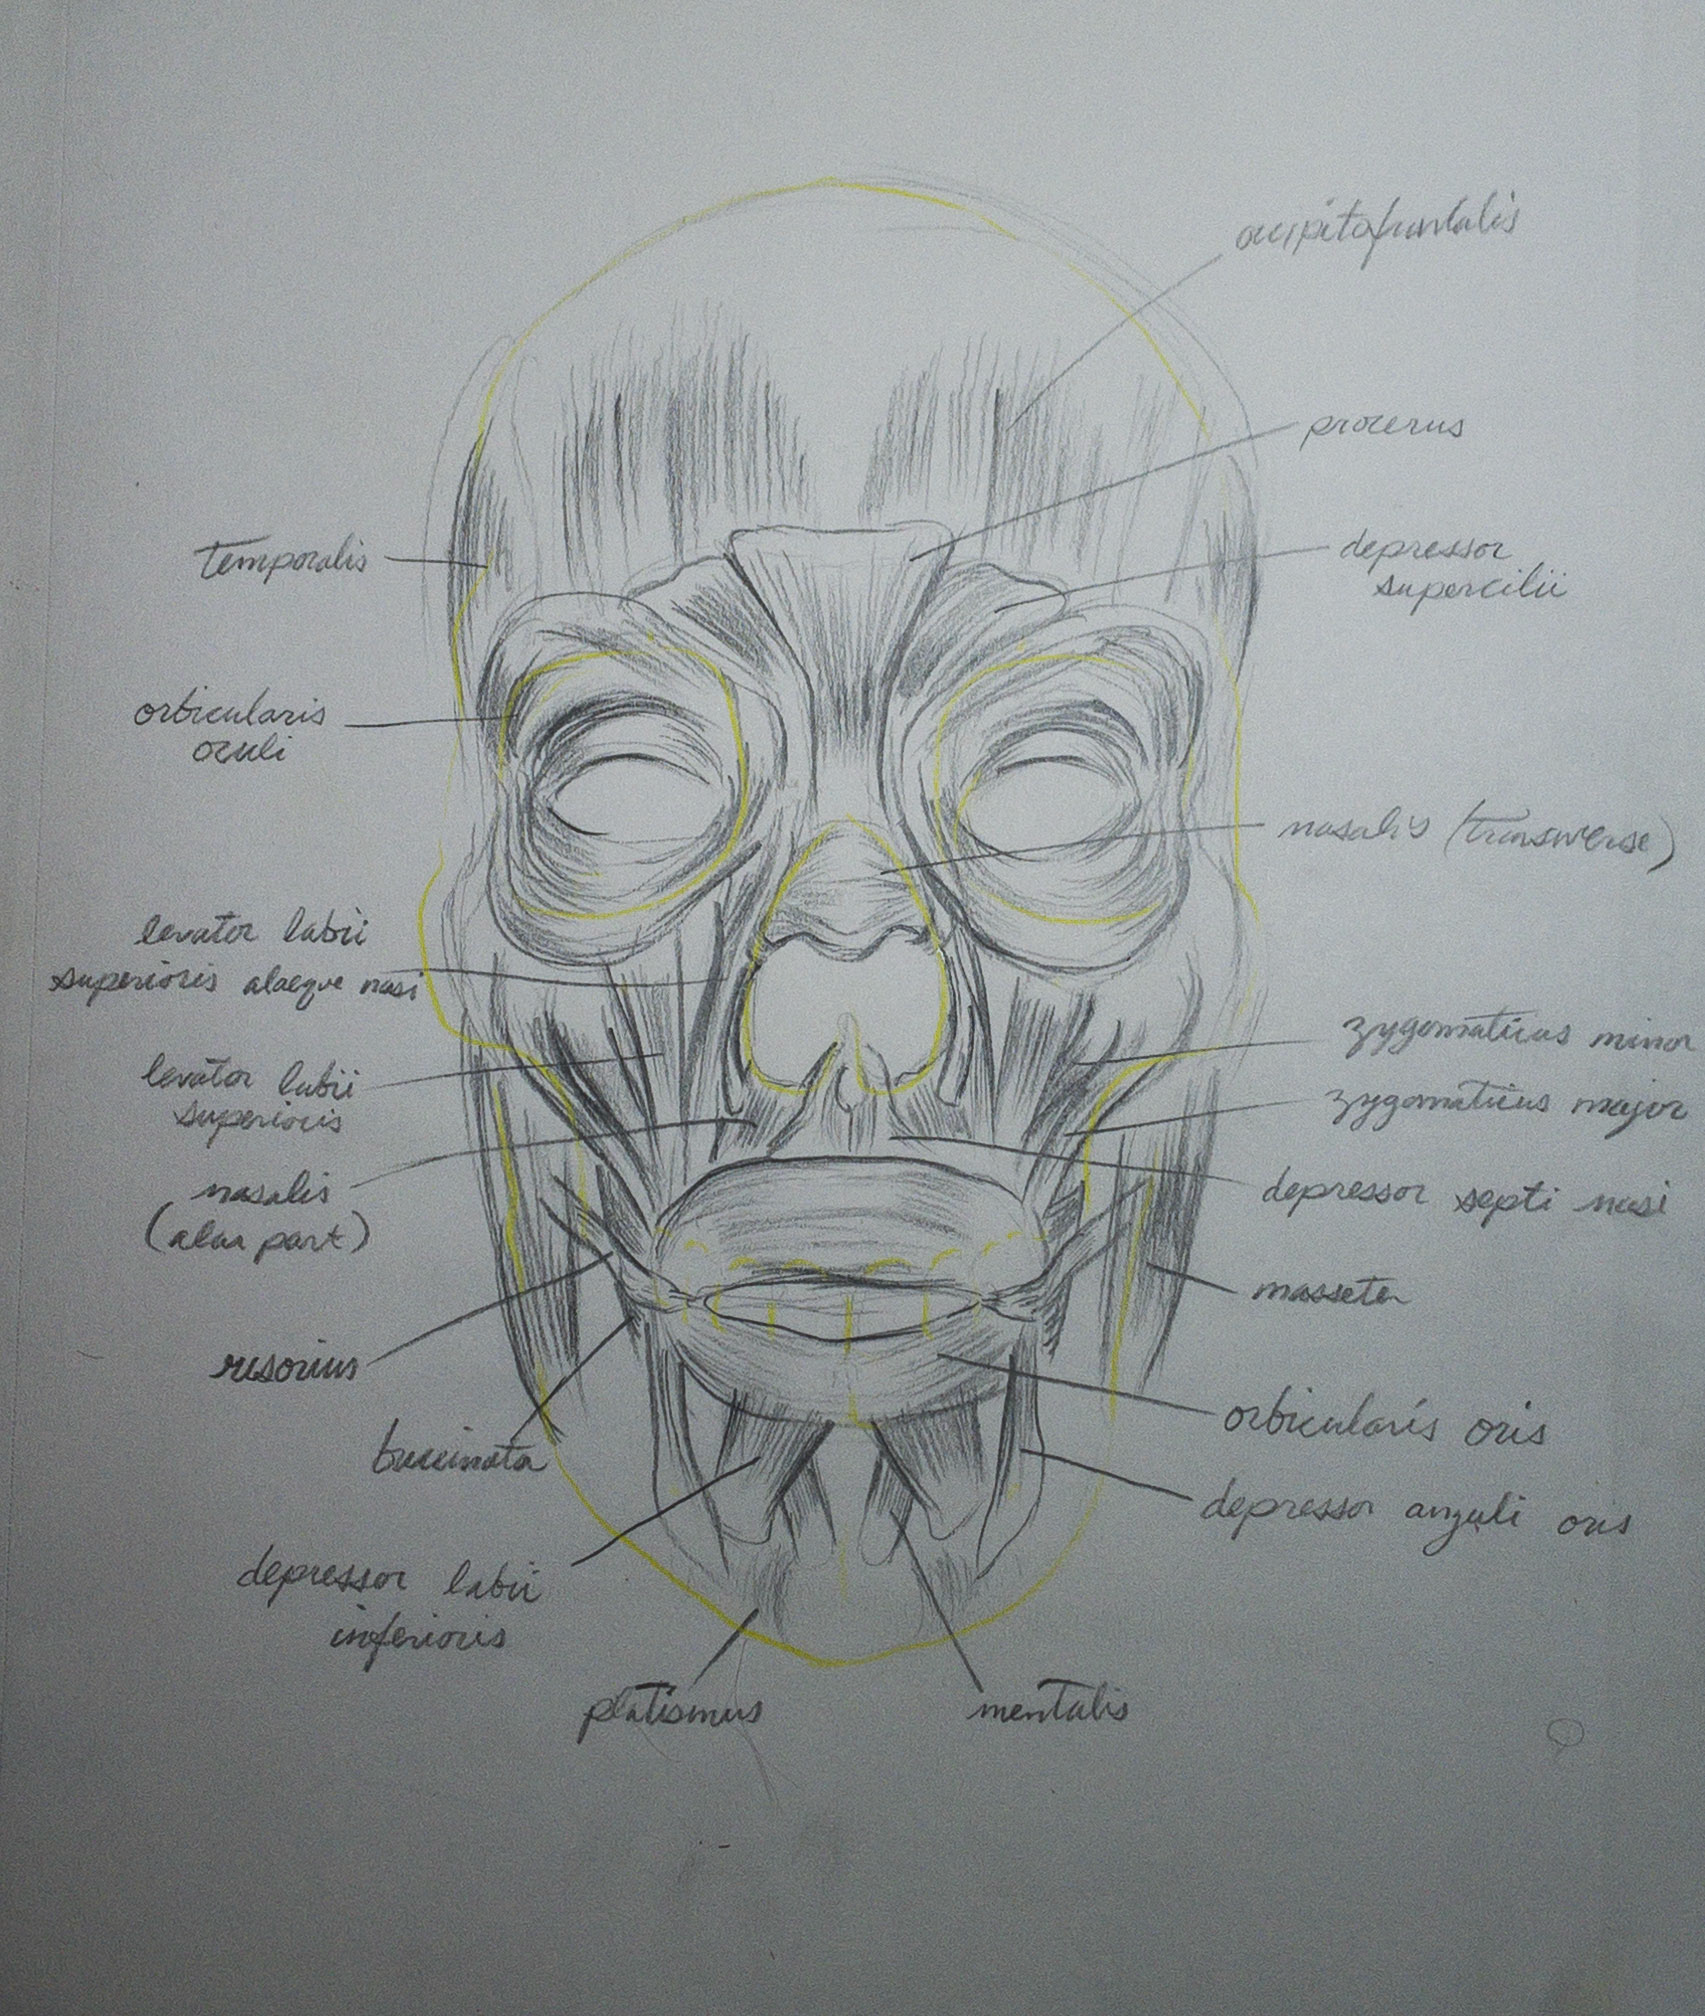 occipitofrontalis
procerus
temporalis
depressor
supercilii
orbicularis
oculi
nasalis (transverse)
levator labii
superioris alaeque nasi
zygomaticus minor
levator labii
superioris
zygomaticus major
nasalis
(alaa part)
depressor septi nasi
masseter
risorius
orbicularis oris
buccinata
depressor anguli oris
depressor labii
inferioris
platismus
mentalis